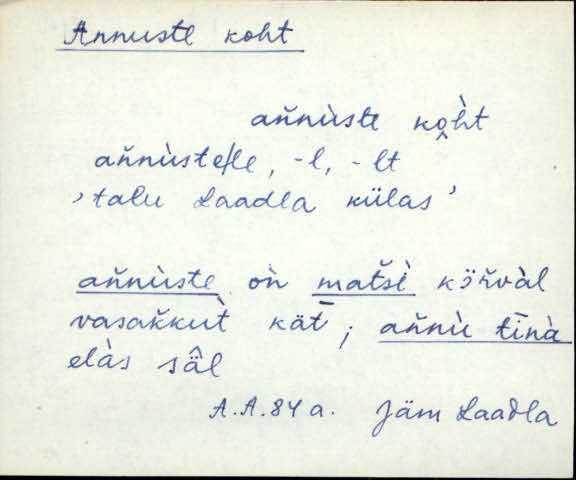 Annuste koht
an̆nùste kòh̭t
an̆nùste/le, -l, -lt
›talu Laadla külas’
an̆nùste on̆̀ mat̆sì kö̆r̆vàl
vasak̆kut̀ kät̄; an̆nù tīnà
elàs sâ̈l
A.A. 84 a. Jäm Laadla